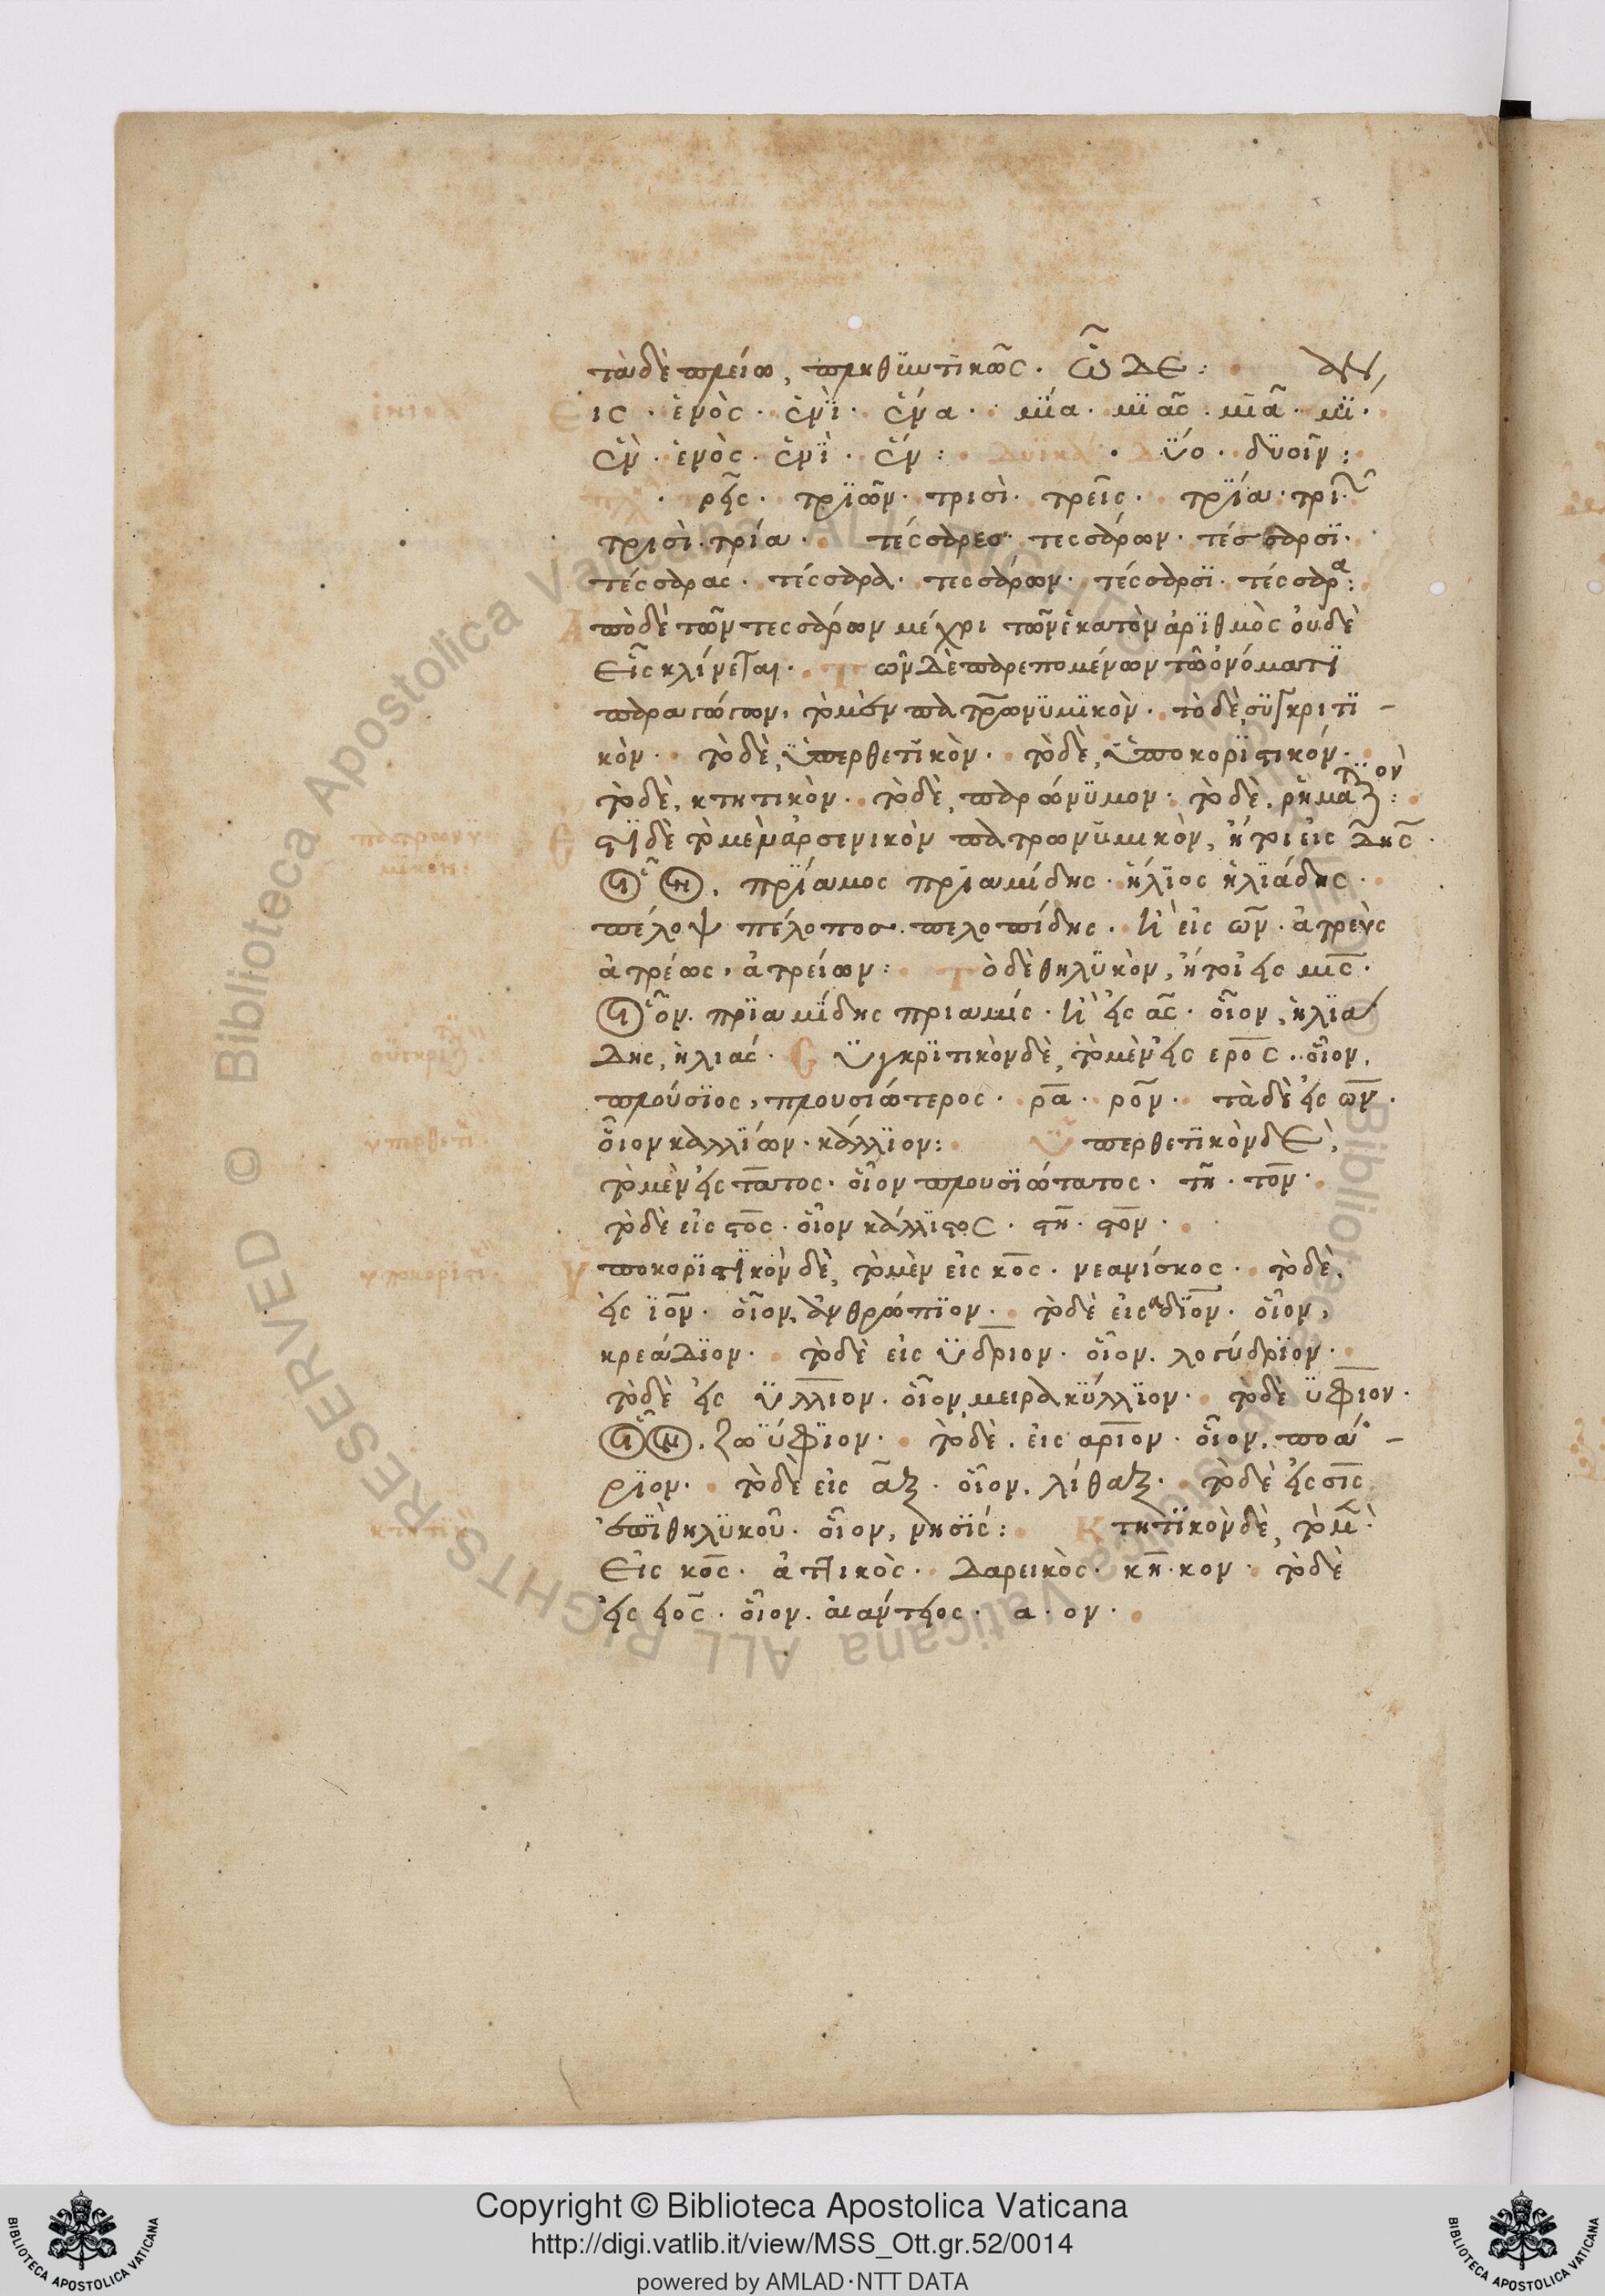 τὰ δὲ πλείω, πληθυντικῶς. ὧδε:
Εἷς. ἑνὸς. ἑνὶ. ἕνα. μία. μιᾶς. μιᾶ. μί.
ἓν. ἑνὸς. ἑνὶ. ἕν: Δυϊκά. Δύο. δυοῖν:
ρεῖς. τριῶν. τρισὶ. τρεῖς. τρία. τρι.
τρισὶ. τρία. τέσσαρες. τεσσάρων. τέσσαρσι.
τέσσαρας. τέσσαρα. τεσσάρων. τέσσαρσι. τέσσαρα:
Ἀπὸ δὲ τῶν τεσσάρων μέχρι τῶν ἑκατὸν ἀριθμὸς οὐδὲ
εἷς κλίνεται. Τῶν δὲ παρεπομένων τῶ ὀνόματι
τὸ μὲν πατρωνυμικὸν. τὸ δὲ, συγκριτι-
κὸν. τὸ δὲ, ὑπερθετικὸν. τὸ δὲ, ὑποκοριστικόν.
τὸ δὲ, κτητικὸν. τὸ δὲ, παρώνυμον. τὸ δὲ, ῥηματικὸν:
πατρωνυμικόν:
Ἔστι δὲ τὸ μὲν ἀρσενικὸν πατρωνυμικὸν, ἤτοι εἰς δης.
πρίαμος πριαμίδης. ἥλιος ἡλιάδης.
πέλοψ πέλοπος. πελοπίδης. ἢ εἰς ων. ἀτρεὺς
ἀτρέως. ἀτρείων: Τὸ δὲ θηλυκὸν, ἤτοι εἰς μις.
οἷον. πριαμίδης πριαμίς. ἢ εἰς ας. οἷον, ἡλιά
δης, ἡλιάς. Συγκριτικὸν δὲ, τὸ μὲν εἰς ερος. οἷον,
πλούσιος, πλουσιώτερος. ρα. ρον. τὰ δὲ εἰς ων.
ὑπερθετι.
οἷον καλλίων. κάλλιον: Ὑπερθετικὸν δὲ,
τὸ μὲν εἰς τατος. οἷον πλουσιώτατος. τη. τον.
τὸ δὲ εἰς στος. οἷον κάλλιστος. στη. στον.
ὑποκοριστι.
Ὑποκοριστικὸν δὲ, τὸ μὲν εἰς κος. νεανίσκος. τὸ δὲ,
εἰς ιον. οἷον, ἀνθρώπιον. τὸ δὲ εἰς αδιον. οἷον,
κρεάδιον. τὸ δὲ εἰς υδριον. οἷον. λογύδριον.
τὸ δὲ εἰς υλλιον. οἷον, μειρακύλλιον. τὸ δὲ υφιον.
ζωύφιον. τὸ δὲ. εἰς αριον. οἷον. ποά-
ριον. τὸ δὲ εἰς αξ. οἷον. λίθαξ. τὸ δὲ εἰς σις
ἐπὶ θηλυκοῦ. οἷον, νησίς: Κτητικὸν δὲ, τὸ μὲν
εἰς κος. ἀττικὸς. δαρεικὸς. κη. κον. τὸ δὲ
εἰς ειος. οἷον. αἰάντειος. α. ον.
Copyright © Biblioteca Apostolica Vaticana
http://digi.vatlib.it/view/MSS_Ott.gr.52/0014
powered by AMLAD·NTT DATA
BIBLIOTECA APOSTOLICA VATICANA
BIBLIOTECA APOSTOLICA VATICANA
© Biblioteca Apostolica Vaticana ALL RIGHTS RESERVED